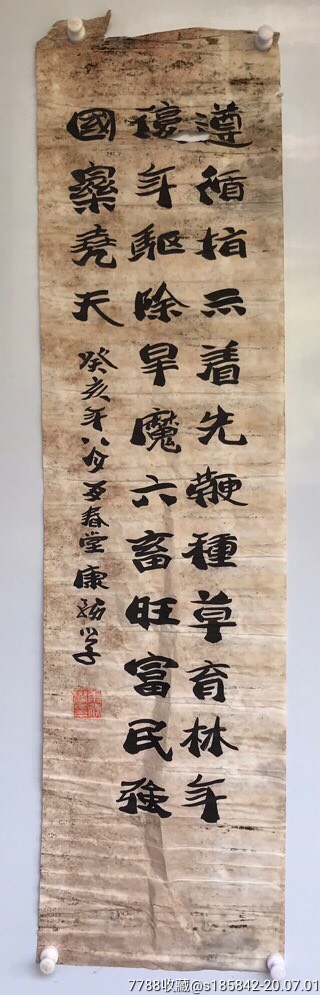 遵循指示着先鞭種草育林年
復年驅除旱魔六畜旺富民強
國樂堯天
癸亥年八月 春堂康
7788收藏@s185842-20.07.01